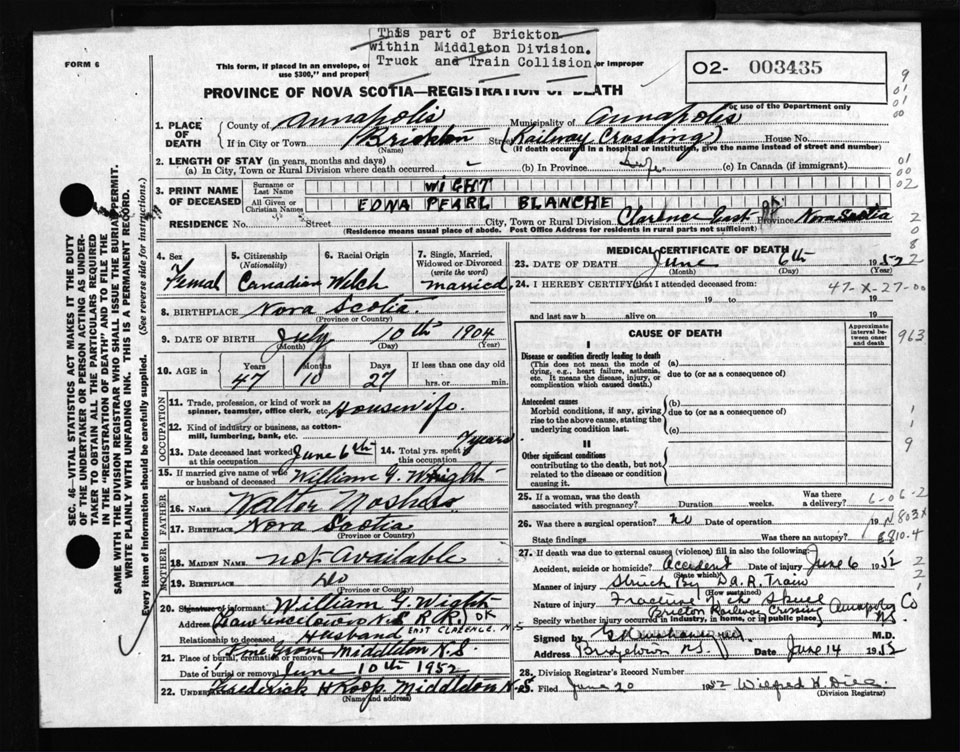 This part of Brickton
within Middleton Division.
Truck and Train Collision.
FORM 6
This form, if placed in an envelope, or improper
use $300," and properly
02- 003435
PROVINCE OF NOVA SCOTIA—REGISTRATION OF DEATH
For use of the Department only
1. PLACE OF DEATH
County of Annapolis Municipality of Annapolis
If in City or Town Brickton (Name) Street (Railway Crossing) House No.
(If death occurred in a hospital or institution, give the name instead of street and number)
2. LENGTH OF STAY (in years, months and days)
(a) In City, Town or Rural Division where death occurred - (b) In Province Life (c) In Canada (if immigrant)
3. PRINT NAME OF DECEASED
Surname or Last Name WIGHT
All Given or Christian Names EDNA PEARL BLANCHE
RESIDENCE No. Street City, Town or Rural Division Clarence East Province Nova Scotia
(Residence means usual place of abode. Post Office Address for residents in rural parts not sufficient)
4. Sex Femal
5. Citizenship (Nationality) Canadian
6. Racial Origin Welch
7. Single, Married, Widowed or Divorced (write the word) married
8. BIRTHPLACE Nova Scotia
(Province or Country)
9. DATE OF BIRTH July 10th 1904
(Month) (Day) (Year)
10. AGE in Years 47 Months 10 Days 27 If less than one day old hrs. or min.
OCCUPATION
11. Trade, profession, or kind of work as spinner, teamster, office clerk, etc. Housewife.
12. Kind of industry or business, as cotton-mill, lumbering, bank, etc.
13. Date deceased last worked at this occupation June 6th 14. Total yrs. spent in this occupation 7 years
15. If married give name of wife or husband of deceased William G. Wright
FATHER
16. NAME Walter
17. BIRTHPLACE Nova Scotia
MOTHER
18. MAIDEN NAME not Available
19. BIRTHPLACE Do
(Province or Country)
20. Signature of informant William G. Wight
Address (Lawrencetown N.S. R.R.) OK
EAST CLARENCE. N.S
Relationship to deceased Husband
21. Place of burial, cremation or removal Pine Grove Middleton N.S.
Date of burial or removal June 10th 1952
22. Undertaker Frederick H Roop. Middleton N.S.
(Name and address)
MEDICAL CERTIFICATE OF DEATH
23. DATE OF DEATH June 6th 1952
(Month) (Day) (Year)
24. I HEREBY CERTIFY that I attended deceased from:
47-X-27-00
19 to 19
and last saw h alive on 19
CAUSE OF DEATH
Approximate interval between onset and death
I
Disease or condition directly leading to death
(This does not mean the mode of dying, e.g., heart failure, asthenia, etc. It means the disease, injury, or complication which caused death.)
(a)
due to (or as a consequence of)
Antecedent causes
Morbid conditions, if any, giving rise to the above cause, stating the underlying condition last.
(b)
due to (or as a consequence of)
(c)
II
Other significant conditions
contributing to the death, but not related to the disease or condition causing it.
25. If a woman, was the death associated with pregnancy? Duration weeks. Was there a delivery?
26. Was there a surgical operation? no Date of operation 19
State findings Was there an autopsy?
27. If death was due to external causes (violence) fill in also the following:
Accident, suicide or homicide? Accident Date of injury June 6 1952
(State which)
Manner of injury Struck By D.A.R. Train
(How sustained)
Nature of injury Fracture of the Skull
Bricton Railway Crossing Annapolis Co
N.S.
Specify whether injury occurred in industry, in home, or in public place)
Signed by M.D.
Address Bridgetown N.S. Date June 14 1952
28. Division Registrar's Record Number
Filed June 20 1952 Wilfred H.
(Division Registrar)
SEC. 46—VITAL STATISTICS ACT MAKES IT THE DUTY
OF THE UNDERTAKER OR PERSON ACTING AS UNDER-
TAKER TO OBTAIN ALL THE PARTICULARS REQUIRED
IN THE "REGISTRATION OF DEATH" AND TO FILE THE
SAME WITH THE DIVISION REGISTRAR WHO SHALL ISSUE THE BURIAL PERMIT.
WRITE PLAINLY WITH UNFADING INK. THIS IS A PERMANENT RECORD.
Every item of information should be carefully supplied. (See reverse side for instructions.)
963
6-06-2
N803X
8810.4